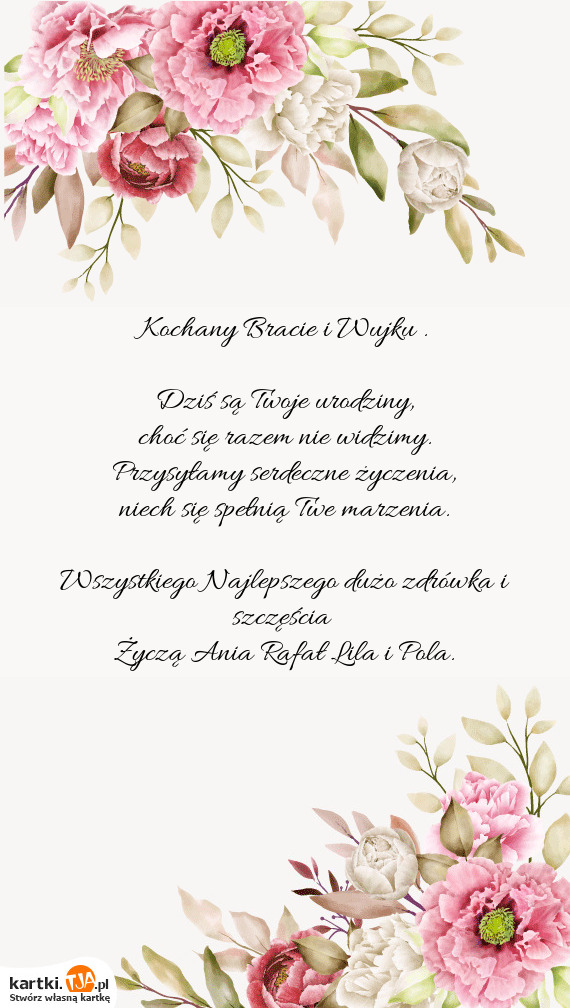 Kochany Bracie i Wujku .
Dziś są Twoje urodziny,
choć się razem nie widzimy.
Przysyłamy serdeczne życzenia,
niech się spełnią Twe marzenia.
Wszystkiego Najlepszego dużo zdrówka i
szczęścia
Życzą Ania Rafał Lila i Pola.
kartki.TJA.pl
Stwórz własną kartkę